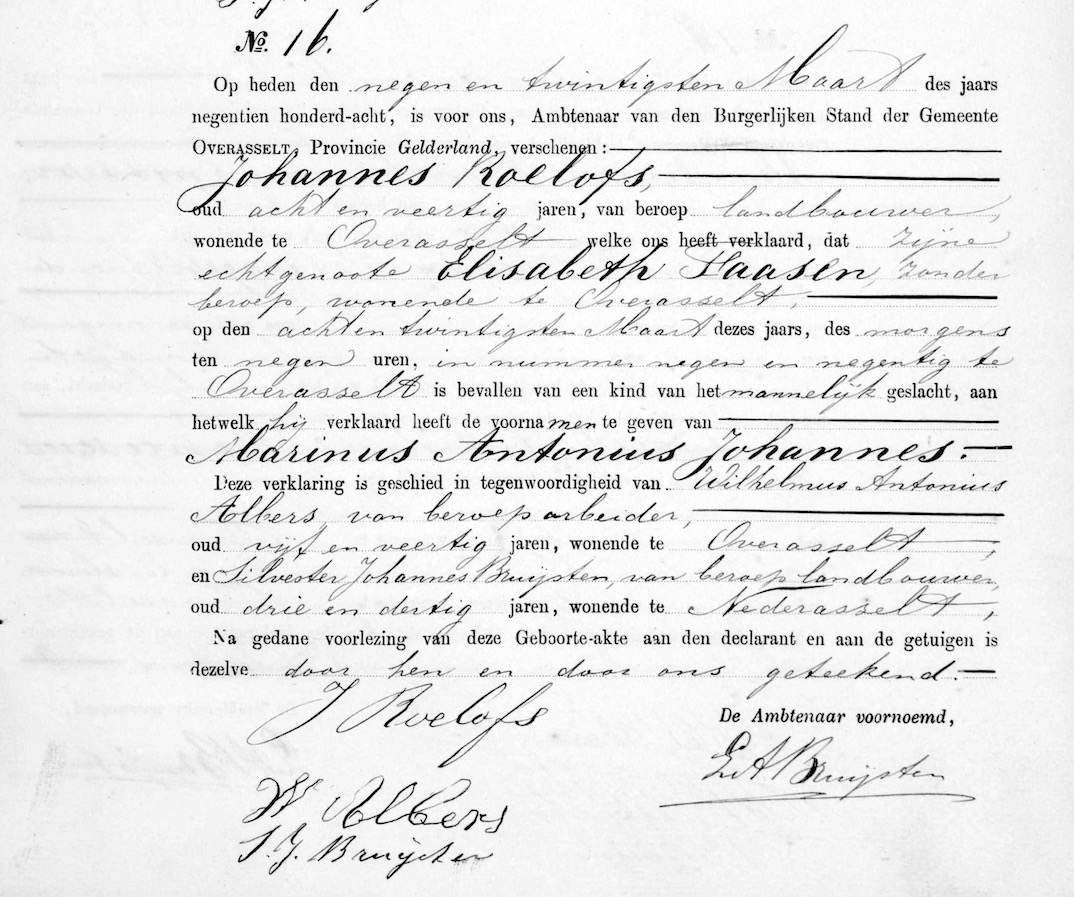 No. 16.
Op heden den negen en twintigsten Maart des jaars
negentien honderd-acht, is voor ons, Ambtenaar van den Burgerlijken Stand der Gemeente
OVERASSELT, Provincie Gelderland, verschenen:
Johannes Roelofs,
oud acht en veertig jaren, van beroep landbouwer,
wonende te Overasselt welke ons heeft verklaard, dat zijne
echtgenoote Elisabeth Faasen, zonder
beroep, wonende te Overasselt,
op den acht en twintigsten Maart dezes jaars, des morgens
ten negen uren, in nummer negen en negentig te
Overasselt is bevallen van een kind van het mannelijk geslacht, aan
hetwelk hij verklaard heeft de voornamen te geven van
Marinus Antonius Johannes.
Deze verklaring is geschied in tegenwoordigheid van Wilhelmus Antonius
Albers, van beroep arbeider,
oud vijf en veertig jaren, wonende te Overasselt,
en Silvester Johannes Bruijsten, van beroep landbouwer,
oud drie en dertig jaren, wonende te Nederasselt,
Na gedane voorlezing van deze Geboorte-akte aan den declarant en aan de getuigen is
dezelve door hen en door ons geteekend.
J Roelofs
De Ambtenaar voornoemd,
Bruijsten
W Albers
S. J. Bruijsten